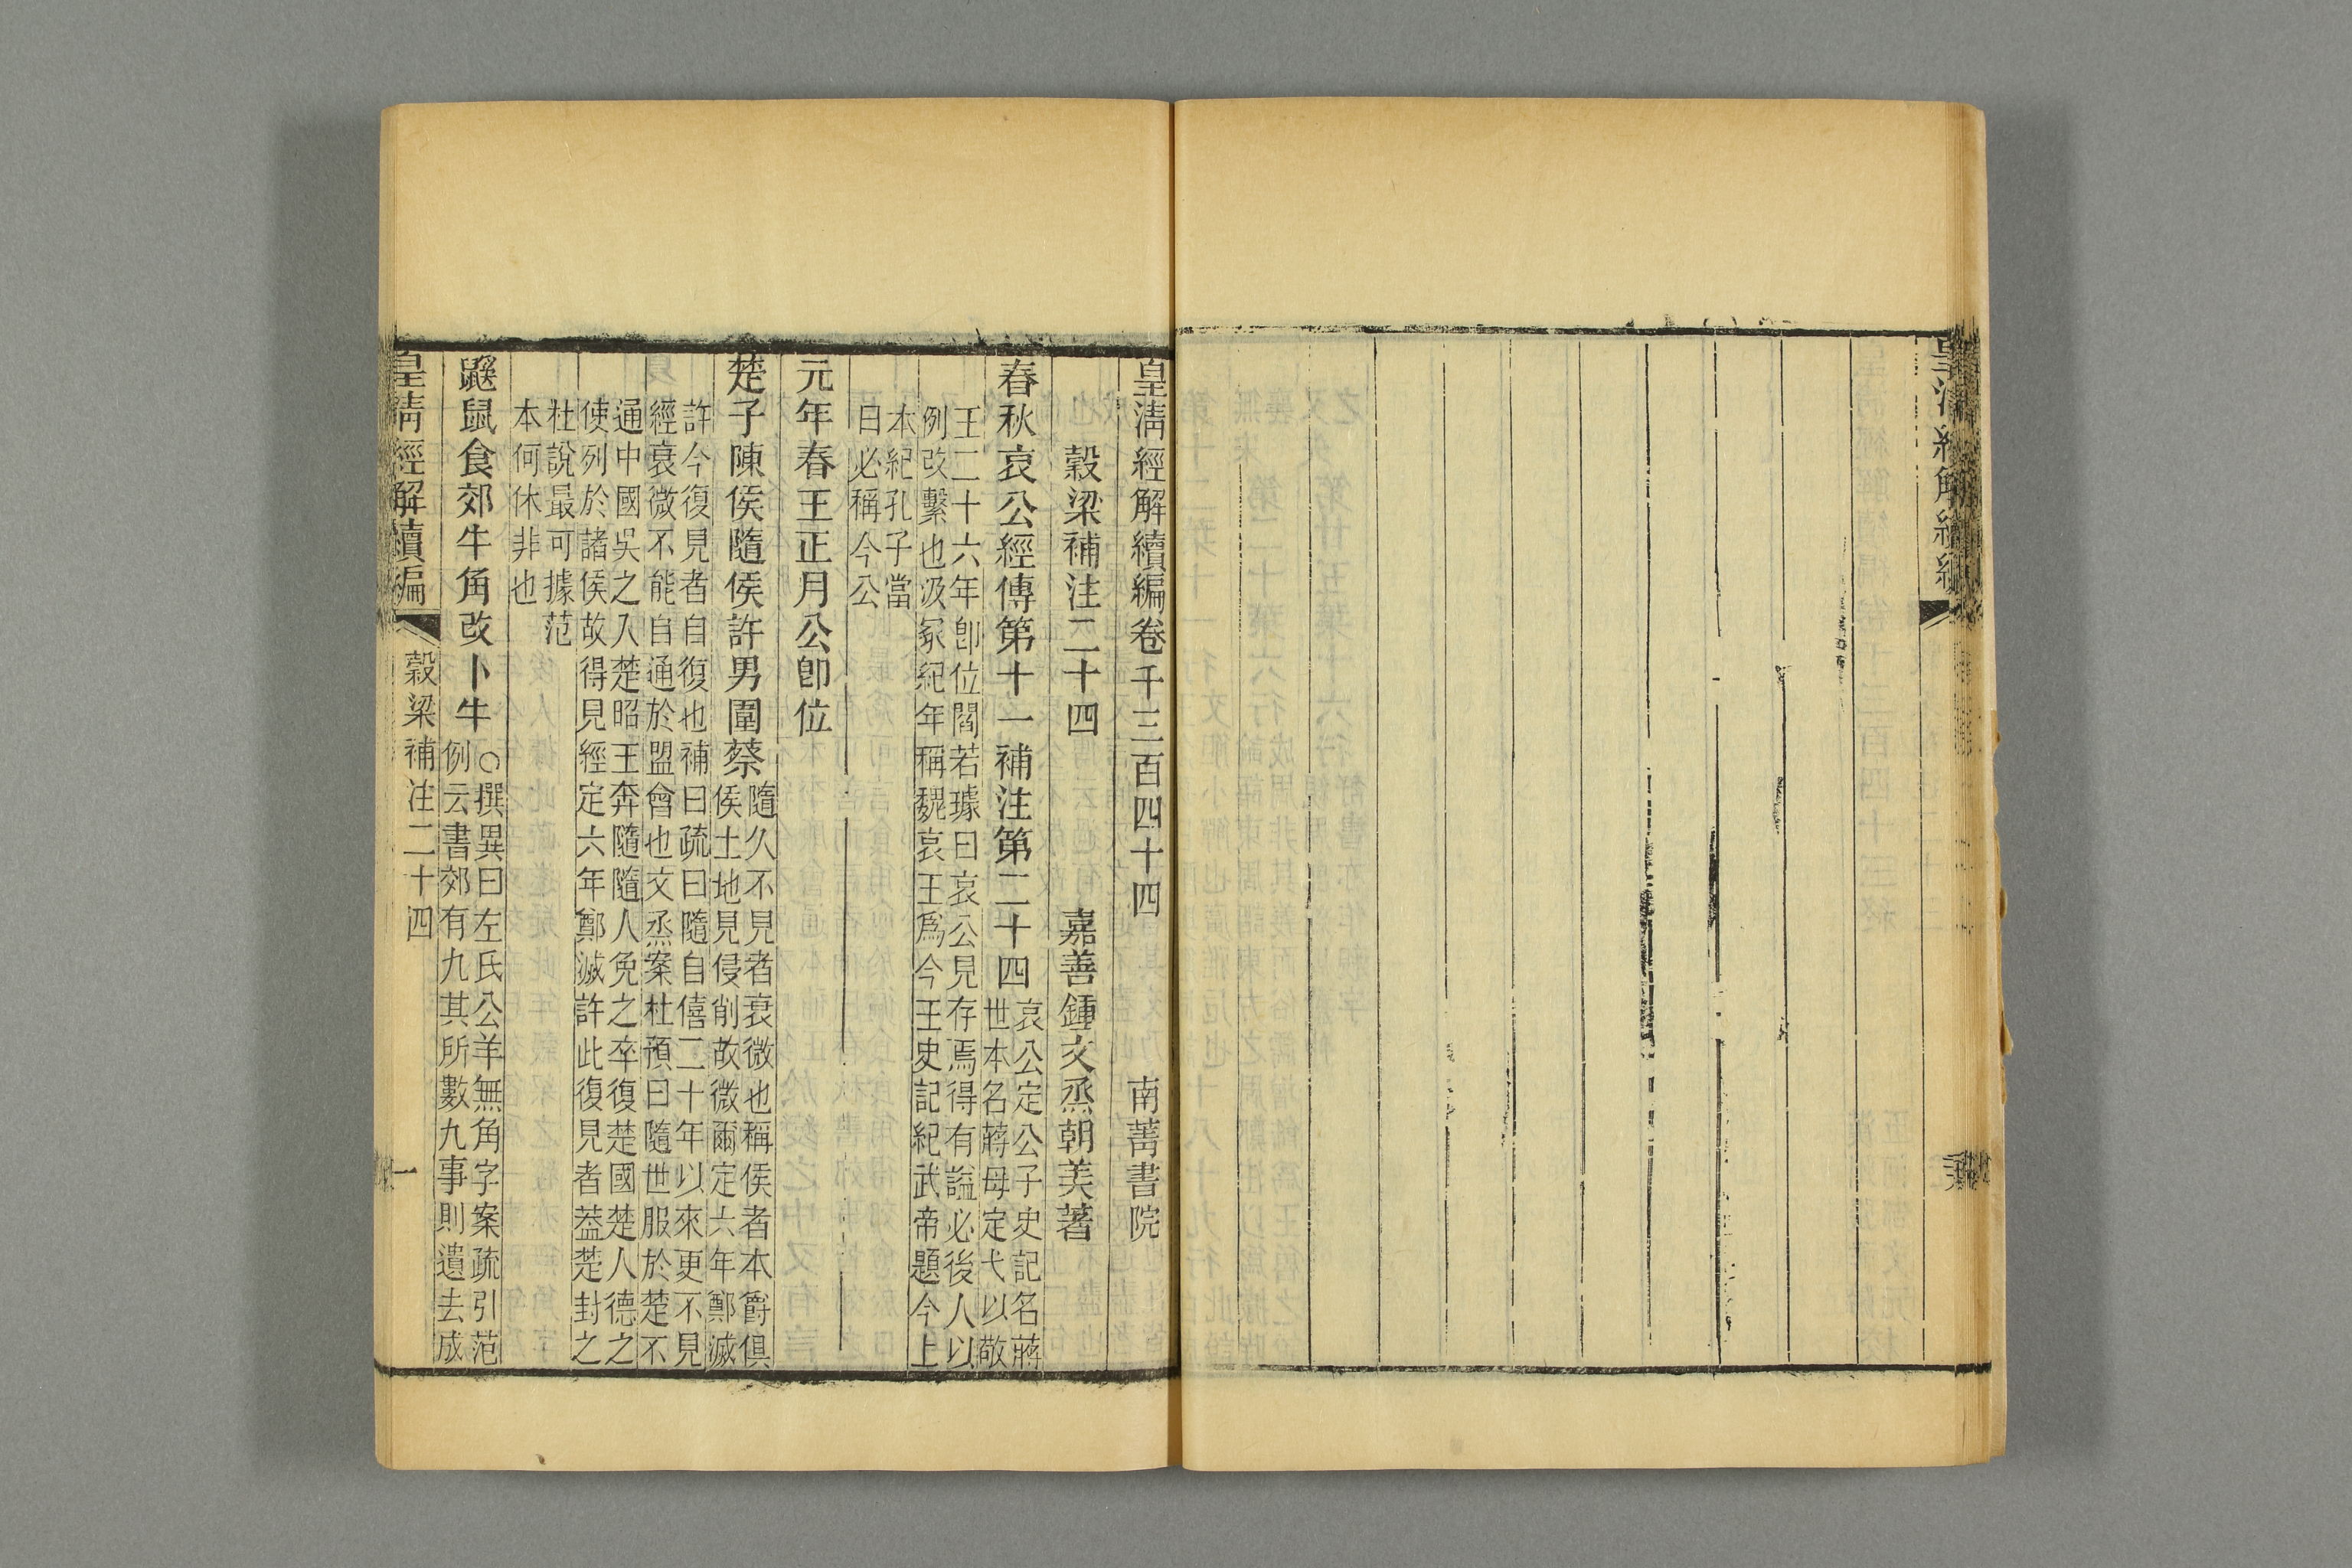 皇清經解續編卷千三百四十四 南菁書院
穀梁補注二十四 嘉善鍾文烝朝美著
春秋哀公經傳第十一補注第二十四
哀公定公子史記名蔣
世本名蔣母定弋以敬
王二十六年卽位閻若璩曰哀公見存焉得有謚必後人以
例改繫也汲冢紀年稱魏哀王爲今王史記紀武帝題今上
本紀孔子當
日必稱今公
元年春王正月公卽位
楚子陳侯隨侯許男圍蔡
隨久不見者衰微也稱侯者本爵俱
侯土地見侵削故微爾定六年鄭滅
許今復見者自復也補曰疏曰隨自僖二十年以來更不見
經衰微不能自通於盟會也文烝案杜預曰隨世服於楚不
通中國吳之入楚昭王奔隨隨人免之卒復楚國楚人德之
使列於諸侯故得見經定六年鄭滅許此復見者葢楚封之
杜說最可據范
本何休非也
鼷鼠食郊牛角改卜牛
○撰異曰左氏公羊無角字案疏引范
例云書郊有九其所數九事則遺去成
皇清經解續編 穀梁補注二十四 一